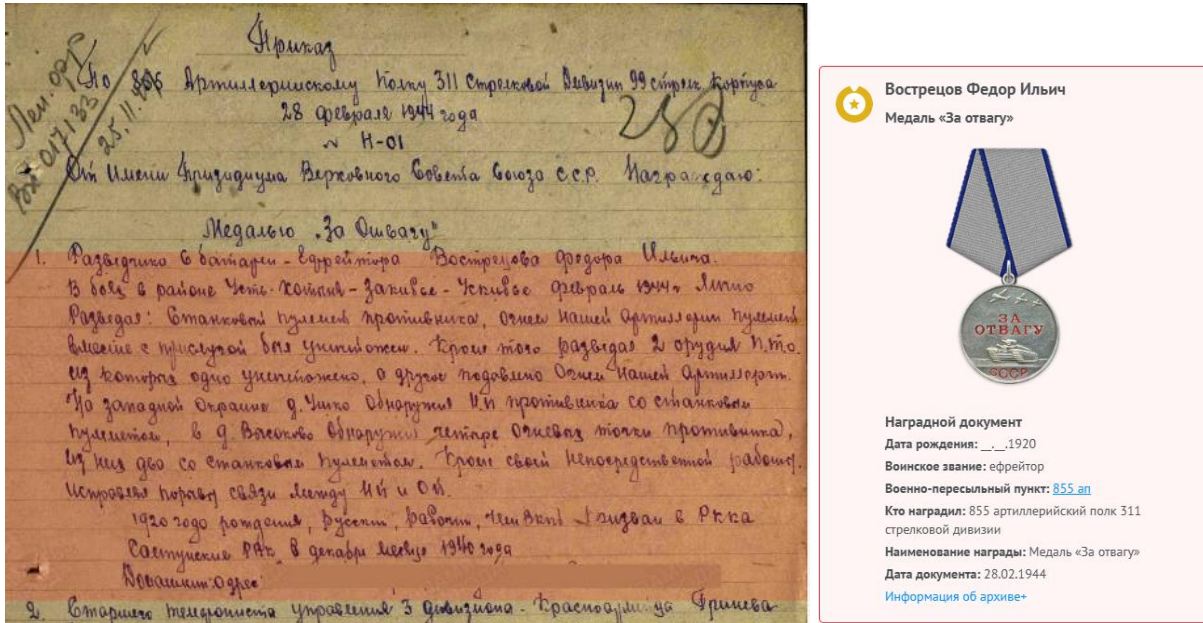 Приказ
По 855 Артиллерийскому Полку 311 Стрелковой Дивизии 99 стрелк. Корпуса
28 февраля 1944 года
№ Н-01
От Имени Призидиума Верховного Совета Союза С.С.Р. Награждаю:
250
25.11.
Вх 017133
Медалью „За Отвагу"
1. Разведчика 6 батареи - Ефрейтора Вострецова Федора Ильича.
В боях в районе Усть- - Закибье - Ускибье февраль 1944 г. Лично
Разведал: Станковый пулемет противника, огнем нашей артиллерии пулемет
вместе с прислугой был уничтожен. Кроме того разведал 2 орудия П.т.о.
из которых одно уничтожено, а другое подавлено Огнем Нашей Артиллерии.
На западной Окраине д. Обнаружил Н.П противника со станковым
пулеметом, в д. Высоково Обнаружил четыре Огневых точки противника,
из них две со станковым пулеметом. Кроме своей Непосредственной работы,
Исправлял порывы связи между НП и ОП.
1920 года рождения, Русский, рабочий, член ВКПб призван в РККА
РВК в декабре месяце 1940 года
Домашний адрес:
2. Старшего телефониста управления 3 дивизиона - Красноармейца Гринева
Вострецов Федор Ильич
Медаль «За отвагу»
ЗА
ОТВАГУ
СССР
Наградной документ
Дата рождения: __.__.1920
Воинское звание: ефрейтор
Военно-пересыльный пункт: 855 ап
Кто наградил: 855 артиллерийский полк 311
стрелковой дивизии
Наименование награды: Медаль «За отвагу»
Дата документа: 28.02.1944
Информация об архиве+